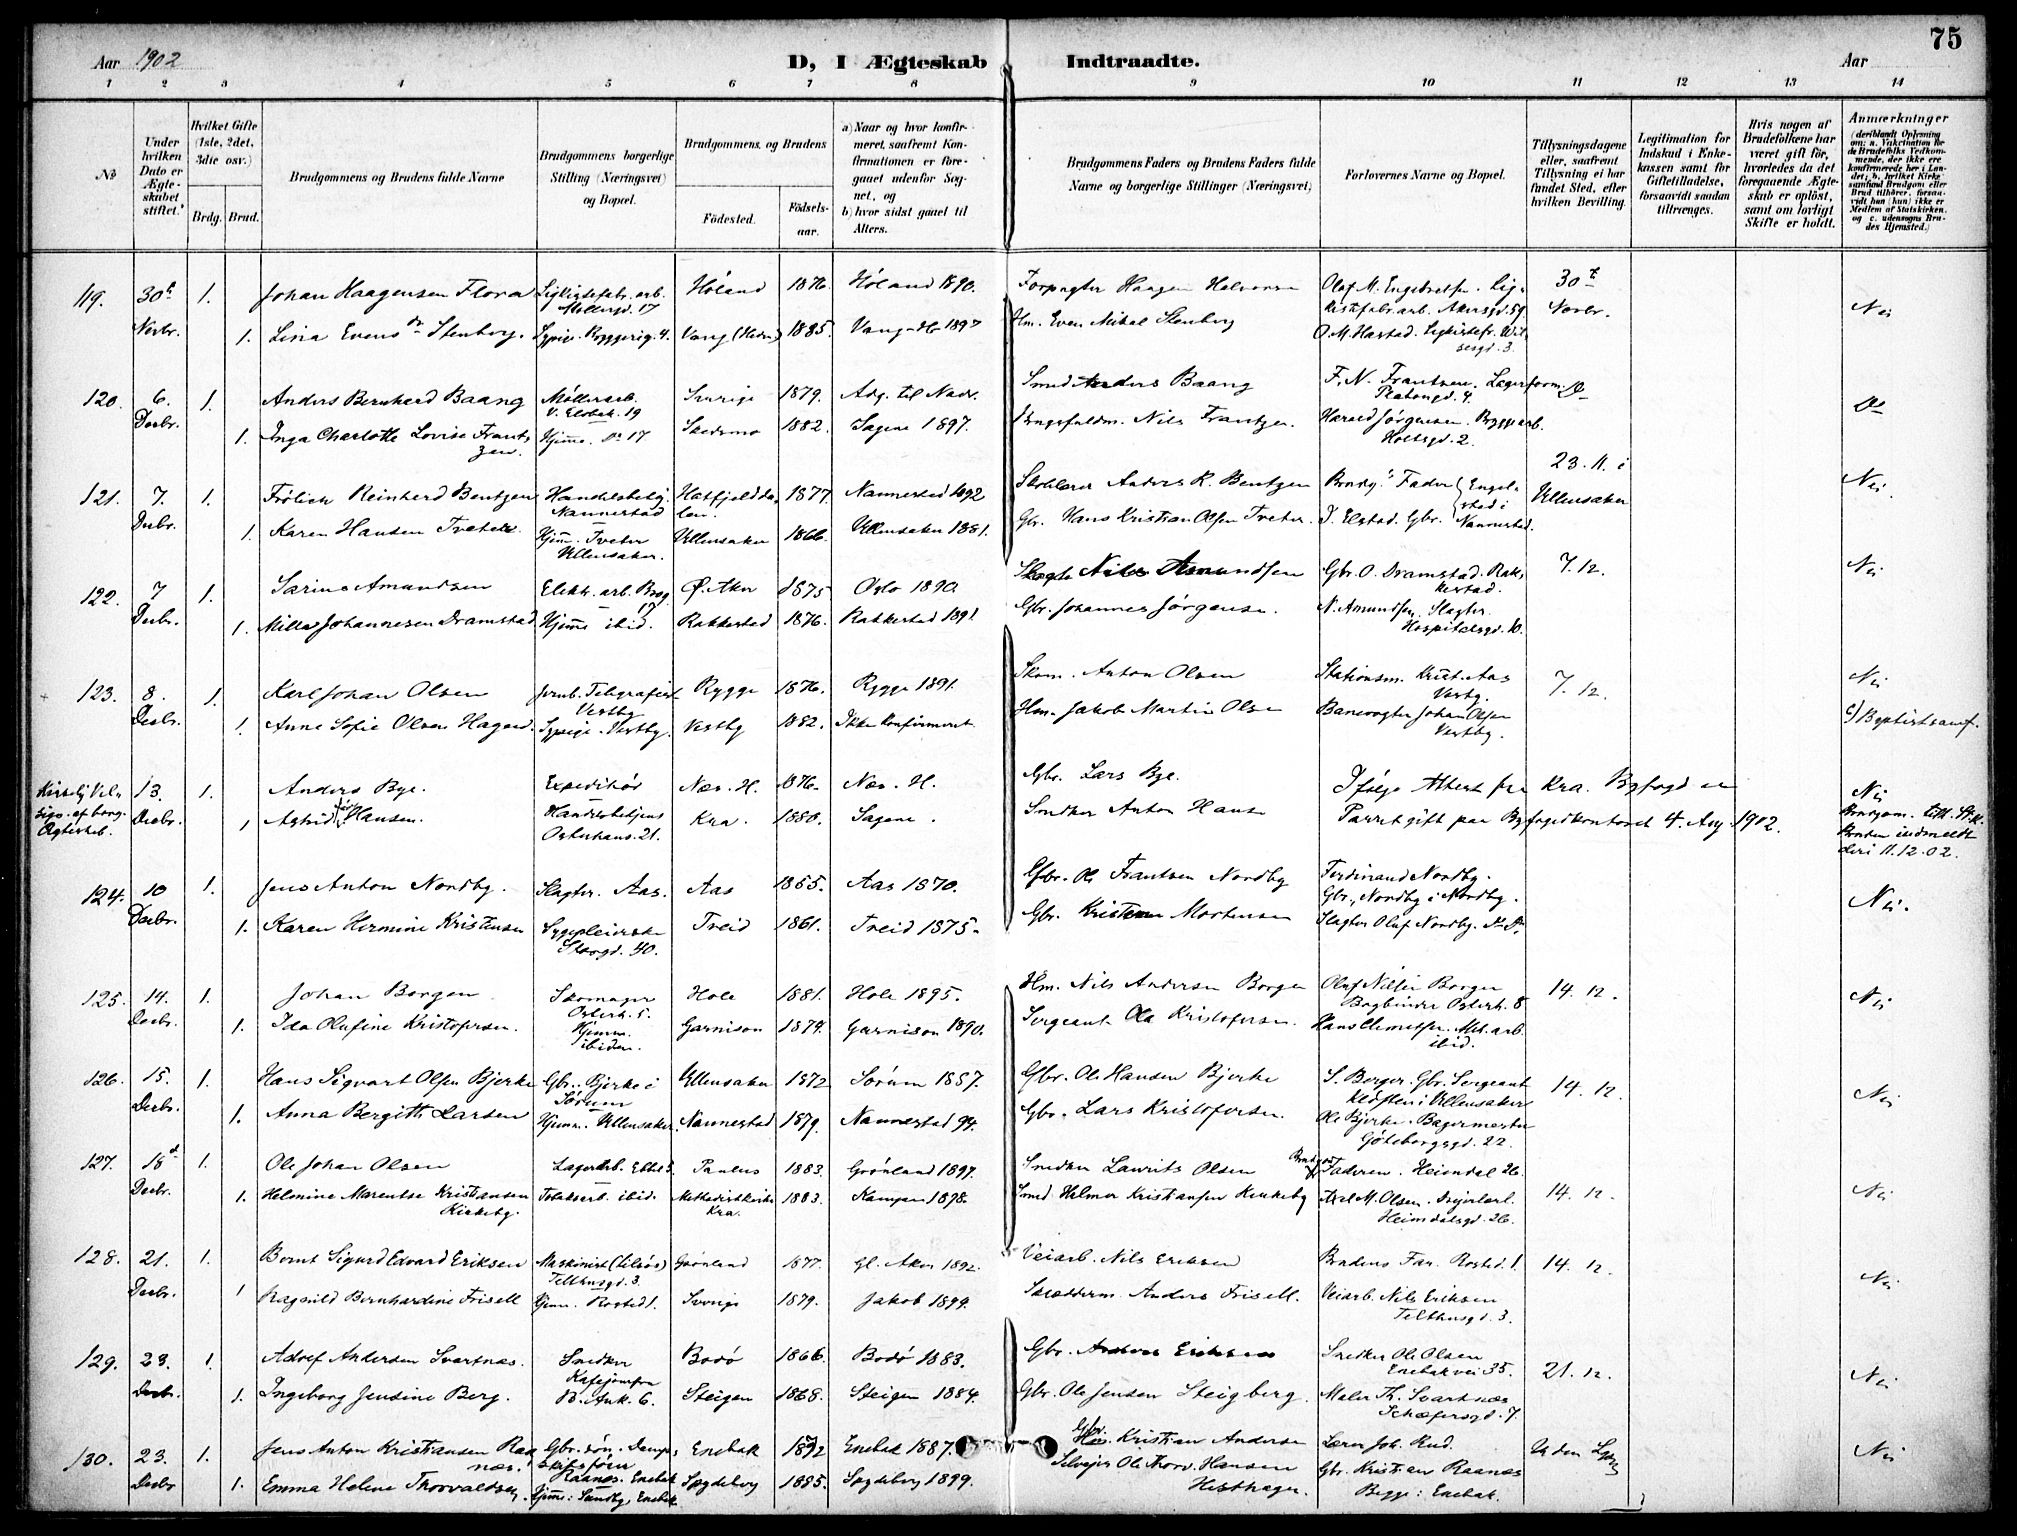 75
Aar 1902
D, I Ægteskab Indtraadte.
Aar
1 2 3 4 5 6 7 8 9 10 11 12 13 14
No
Under hvilken Dato er Ægteskabet stiftet.
Hvilket Gifte (1ste, 2det, 3die osv.)
Brdg. Brud.
Brudgommens og Brudens fulde Navne
Brudgommens borgerlige Stilling (Næringsvei) og Bopæl.
Brudgommens og Brudens
Födested. Födsels-aar.
a) Naar og hvor konfirmeret, saafremt Konfirmationen er foregaaet udenfor Sognet, og
b) hvor sidst gaaet til Alters.
Brudgommens Faders og Brudens Faders fulde Navne og borgerlige Stillinger (Næringsvei)
Forlovernes Navne og Bopæl.
Tillysningsdagene eller, saafremt Tillysning ei har fundet Sted, efter hvilken Bevilling.
Legitimation for Indskud i Enkekassen samt for Giftetilladelse, forsaavidt saadan tiltrænges.
Hvis nogen af Brudefolkene har været gift för, hvorledes da det foregaaende Ægteskab er oplöst, samt om lovligt Skifte er holdt.
Anmærkninger
(deriblandt Oplysning om: a. Vakcination for de Brudefolks Vedkommende, der ikke ere konfirmerede her i Landet; b. hvilket Kirkesamfund Brudgom eller Brud tilhører, forsaavidt han (hun) ikke er Medlem af Statskirken. og c. udensogns Brudes Hjemsted.)
119. 30t 1. Johan Haagensen Flora Ligkistefabr. arb. Høland 1876. Høland 1890. Forpagter Haagen Halvorsen Olaf M. Engebretsen. Lig- 30t Nei
Møllergd. 17 kistefabr. arb. Akersgd. 59
Novbr. 1. Lina Evensdr Stenberg. Sypige. Byggerig. 4. Vang (Hedm) 1885. Vang 1897 Hm. Even Mikal Stenberg O. M. Harstad. Novbr.
120. 6. 1. Anders Bernhard Baang Møllerarb. Sverige 1879. Adg. til Nadv. Smed Anders Baang F. N. Frantzen. Lagerform. Do
V. Elvbak. 19 Platousgd. 4.
Decbr. 1. Inga Charlotte Lovise Frantzen. Hjemme. Do 17 Skedsmo 1882. Sagene 1897. Nils Frantzen. Harald Jørgensen. Byggearb. Do
Holtsgd. 2.
121. 7. 1. Frölich Reinherd Bentzen Handelsbetj. Hatfjelddalen. 1877 Nannestad 1892 Anders R. Bentzen Brudg.s Fader Engelstad i 23. 11. i Nei
Nannestad Ullensaker
Decbr. 1. Karen Hansen Tveter Hjemme. Tveter Ullensaker. Ullensaker 1866. Ullensaker 1881. Gbr. Hans Kristian Olsen Tveter. J. Elstad. Gbr. Nannestad.
122. 7 1. Sarinus Amundsen Elektr. arb. 17 Ø. Aker 1875 Oslo 1890. Slagter Nils Amundsen Gbr. O. Dramstad. Rakkestad. 7. 12. Nei
Decbr. 1. Milla Johannesen Dramstad Hjemme ibid. Rakkestad 1876. Rakkestad 1891 Gbr. Johannes Jørgensen. N. Amundsen, Slagter.
Hospitalsgd. 10.
123. 8. 1. Karl Johan Olsen Jernb. Telegrafist Rygge 1876. Rygge 1891. Skom. Anton Olsen Stationsm. Krist. Aas 7. 12. Nei
Vestby Vestby.
Decbr. 1. Anne Sofie Olsen Hagen. Sypige. Vestby. Vestby 1882. Ikke konfirmeret Hm. Jakob Martin Olsen Banevogter Johan Olsen c) Baptistsamf.
Vestby.
Kirkelig Velsign. af borg. Ægteskab. 13. 1. Anders Bye. Expeditör Næs. H. 1876. Næs. H. Gbr. Lars Bye. Ifølge Attest fra Kra. Byfogd er Nei
Decbr. 1 Astrid Hansen. Handelsbetjent Kra. 1880. Sagene. Snedker Anton Hansen Parret gift paa Byfogedkontoret 4. Aug. 1902.
Osterhaus. 21. Brudgom. tilh. St.K. Bruden indmeldt deri 11.12.02.
124. 10 1. Jens Anton Nordby. Slagter. Aas. Aas 1855. Aas 1870. Gbr. Ole Frantsen Nordby Ferdinand Nordby. Nei.
Gbr., Nordby i Nordby.
Decbr. 1. Karen Hermine Kristiansen Sygepleierske Treid 1861. Treid 1875. Gbr. Kristen Mortensen Slagter Oluf Nordby. Do Do
Storgd. 40.
125. 14. 1. Johan Borgen Skomager Hole 1881. Hole 1895. Hm. Nils Andersen Borgen Oluf Nilsen Borgen 14. 12. Nei
Osterh. 5. Bogbinder Osterh. 8
Decbr. 1. Ida Olufine Kristofersen. Hjemm. ibidem. Garnison 1874. Garnison 1890. Sergeant Ole Kristofersen. Hans Clemetsen. Met. arb.
ibid.
126. 15. 1. Hans Sigvart Olsen Bjerke Gbr. Bjerke i Ullensaker 1872 Sørum 1887. Gbr. Ole Hansen Bjerke S. Berger. Gbr. Sergeant 14. 12. Nei
Sørum Kløften i Ullensaker
Decbr. 1. Anna Bergitte Larsen Hjemm. Ullensaker. Nannestad 1879. Nannestad 94. Gbr. Lars Kristofersen. Ole Bjerke. Bagermester
Göteborgsgd. 22.
127. 18d 1. Ole Johan Olsen Lagerarb. Paulus 1883. Grønland 1897. Snedker Laurits Olsen Brudgom Faderen. Heimdal 26. Nei
Decbr. 1. Helmine Marentse Kristiansen Kirkeby. Tobaksarb. ibid. Methodistkirke Kra. 1883. Kampen 1898. Smed Helmer Kristiansen Kirkeby Axel M. Olsen. 14. 12.
Heimdalsgd. 26.
128. 21. 1. Bernt Sigurd Edvard Eriksen Maskinist (tilsøs) Grønland 1877. Gl. Aker 1892. Veiarb. Nils Eriksen Brudens Far. Rosted. 1. 14. 12. Nei
Telthusgd. 3.
Decbr. 1 Ragnhild Bernhardine Frisell Hjemm. Rosted 1. Sverige 1879. Jakob 1894. Skræderm. Anders Frisell. Veiarb. Nils Eriksen
Telthusgd. 3.
129. 23. 1. Adolf Andersen Svartnæs. Snedker Bodö 1866. Bodö 1883. Gbr. Anders Eriksen Snedker Ole Olsen 21. 12. Nei
Kafejomfru Enebakvei 35.
Decbr. 1. Ingeborg Jensine Berg. B. Ank. 6. Steigen 1868. Steigen 1884. Gbr. Ole Jensen Steigberg. Maler Th. Svartnæs
Schæfersgd. 7.
130. 23. 1. Jens Anton Kristiansen Raanæs. Gbr. søn. Dampskibsfører Enebak 1872 Enebak 1887. Gbr. Kristian Andersen Lærer Joh. Rud. Uden Lysn. Nei
Raanæs. Enebak Gbr. Kristian Raanæs
Decbr 1. Emma Helene Thorvaldsen. Hjemme: Sundby, Enebak Spydeberg 1885. Spydeberg 1899. Selveier Ole Thorv. Hansen Hesthagen. Begge: Enebak.